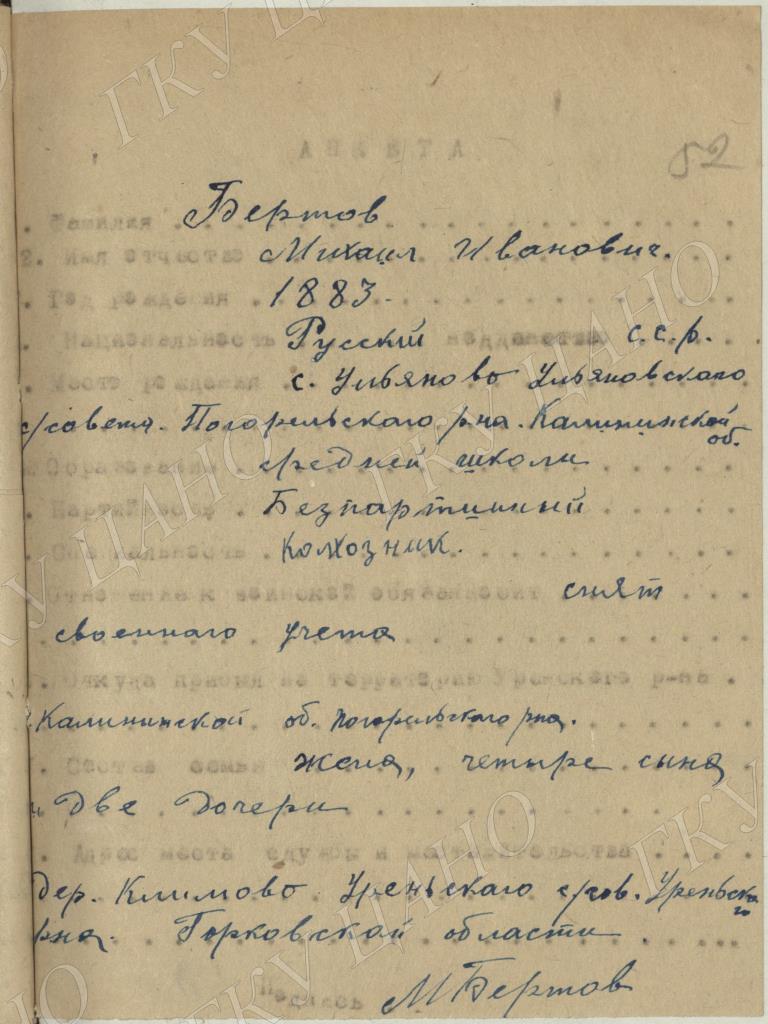 АНКЕТА
52
. Фамилия Бертов
2. Имя отчество Михаил Иванович.
. Год рождения 1883.
Национальность Русский подданство с.с.р.
. Место рождения с. Ульяново Ульяновскаго
с/совета. Погорельскаго р/на. Калининской об.
Образование средней школи
. Партийность Безпартийный
. Социальность Колхозник.
. Отношение к воинской обязаности снят
своеннаго учета
. Откуда прибыл на территорию Уренского р-на .
Калининской об. Погорельскаго р/на.
. Состав семьи жена, четыре сына
и Две Дочери
. Адрес места службы и местожительства
Дер. Климово Уреньскаго с/сов. Уреньскаго
р/на. Горковской области
Подпись МБертов
ГКУ ЦАНО